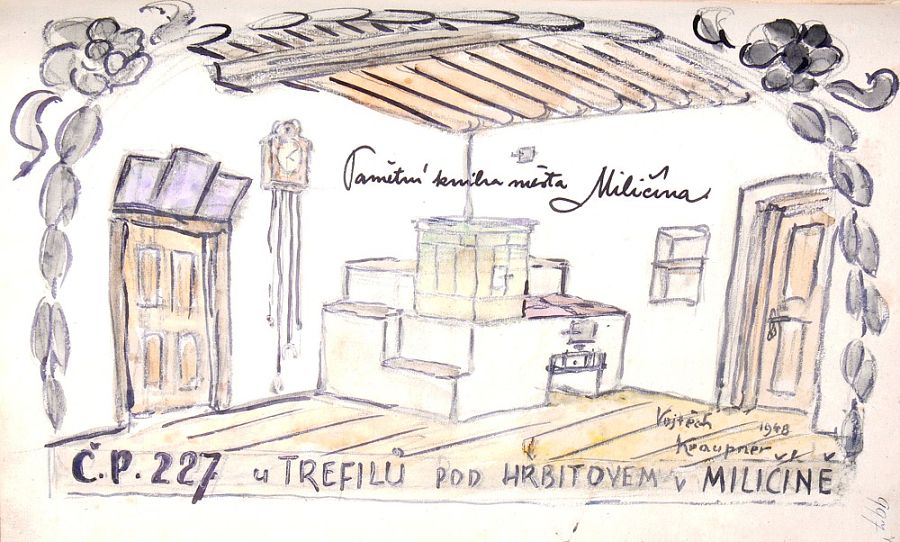 Pamětní kniha města Miličína
Vojtěch 1948
Kraupner
Č.P. 227 u TREFILŮ POD HŘBITOVEM v MILIČÍNĚ